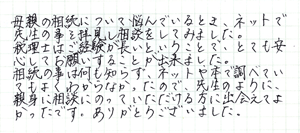 母親の相続について悩んでいるとき、ネットで
先生の事を拝見し相談をしてみました。
税理士はご経験が長いということで、とても安
心してお願いすることが出来ました。
相続の事は何も知らず、ネットや本で調べてい
てもよくわからなかったので、先生のように、
親身に相談にのっていただける方に出会えてよ
かったです。ありがとうございました。